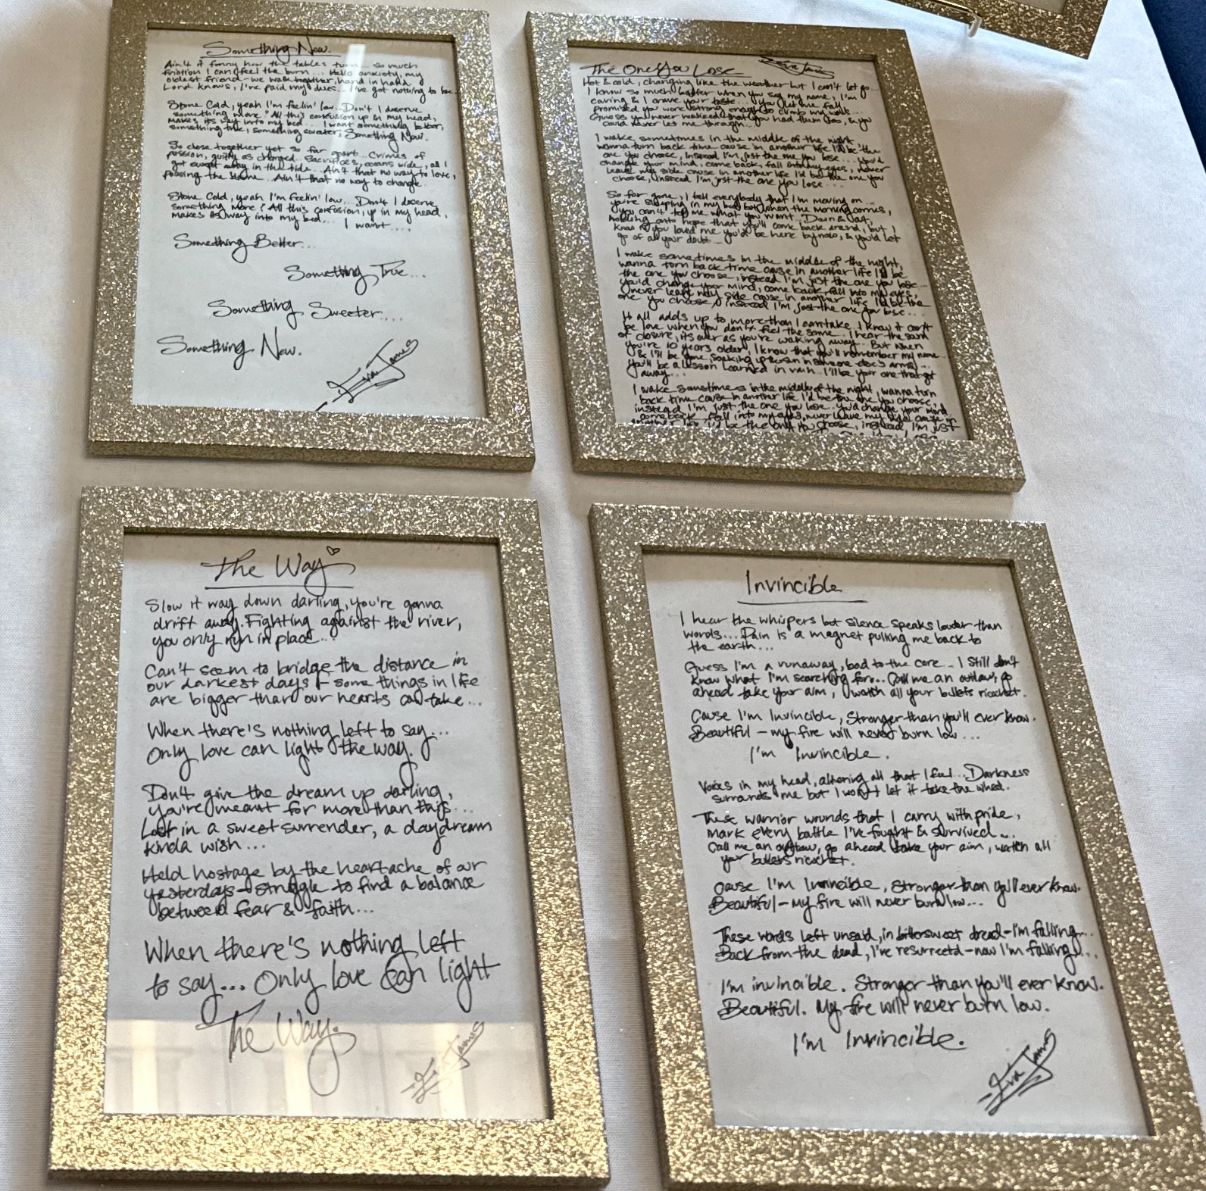 Something New.
Ain't it funny how the tables turn... so much
friction I can feel the burn... Hello anxiety, my
oldest friend - we walk together, hand in hand. &
Lord knows, I've paid my dues... I've got nothing to be
Stone Cold, yeah I'm feelin' low. Don't I deserve
something more? All this confusion up in my head,
makes its way into my bed... I want something better,
something true, something sweeter, Something New.
So close together yet so far apart. Crimes of
passion, guilty as charged. Sacrifices, oceans wide, all I
got caught away in the tide. Ain't that no way to love,
passing the blame. Ain't that no way to change.
Stone Cold, yeah I'm feelin' low... Don't I deserve
something more? All this confusion, up in my head,
makes its way into my bed... I want...!
Something Better...
Something True...
Something Sweeter....
Something New.
Eva James
The One You Lose
Eva James
Hot & cold, changing like the weather but I can't let go.
I know so much better when you say my name, I'm
caving & I crave your taste... You let me fall,
promised you were strong enough to climb my walls.
Guess you never realized that you had them too, & you
could never let me through...
I wake sometimes in the middle of the night,
wanna turn back time cause in another life I'd be the
one you choose, instead I'm just the one you lose... You'd
change your mind, come back, fall into my eyes, never
leave my side cause in another life I'd be the one you
choose, instead I'm just the one you lose...
So far gone, I tell everybody that I'm moving on...
you're sleeping in my bed but when the morning comes,
you can't tell me what you want. Down & out,
holding onto hope that you'll come back around, but I
know if you loved me you'd be here by now, & you'd let
go of all your doubt...
I wake sometimes in the middle of the night,
wanna turn back time cause in another life I'd be
the one you choose, instead I'm just the one you lose...
You'd change your mind, come back, fall into my eyes,
never leave my side cause in another life I'd be the
one you choose, instead I'm just the one you lose...
It all adds up to more than I can take. I know it can't
be love when you don't feel the same. I hear the sound
of closure, it's over as you're walking away. But when
you're 10 years older, I know that you'll remember my name
& I'll be gone, soaking up the sun in someone else's arms...
You'll be a lesson learned in vain. I'll be your one that got
away...
I wake sometimes in the middle of the night, wanna turn
back time cause in another life I'd be the one you choose,
instead I'm just the one you lose. You'd change your mind,
come back, fall into my eyes, never leave my side cause in
another life I'd be the one you choose, instead, I'm just
The Way
Slow it way down darling, you're gonna
drift away. Fighting against the river,
you only run in place...
Can't seem to bridge the distance in
our darkest days & some things in life
are bigger than our hearts can take...
When there's nothing left to say...
Only love can light the way.
Don't give the dream up darling,
you're meant for more than this...
Lost in a sweet surrender, a daydream
kinda wish...
Held hostage by the heartache of our
yesterdays - struggle to find a balance
between fear & faith...
When there's nothing left
to say... Only love can light
The Way.
Eva James
Invincible
I hear the whispers but silence speaks louder than
words... Pain is a magnet pulling me back to
the earth...
Guess I'm a runaway, bad to the core... I still don't
know what I'm searching for... Call me an outlaw, go
ahead take your aim, watch all your bullets ricochet.
Cause I'm Invincible, Stronger than you'll ever know.
Beautiful - my fire will never burn low...
I'm Invincible.
Voices in my head, altering all that I feel... Darkness
surrounds me but I won't let it take the wheel.
These warrior wounds that I carry with pride,
mark every battle I've fought & survived...
Call me an outlaw, go ahead take your aim, watch all
your bullets ricochet.
Cause I'm Invincible, Stronger than you'll ever know.
Beautiful - My fire will never burn low...
These words left unsaid, in bittersweet dread - I'm falling...
Back from the dead, I've resurrected - now I'm falling...
I'm invincible. Stronger than you'll ever know.
Beautiful. My fire will never burn low.
I'm Invincible.
Eva James